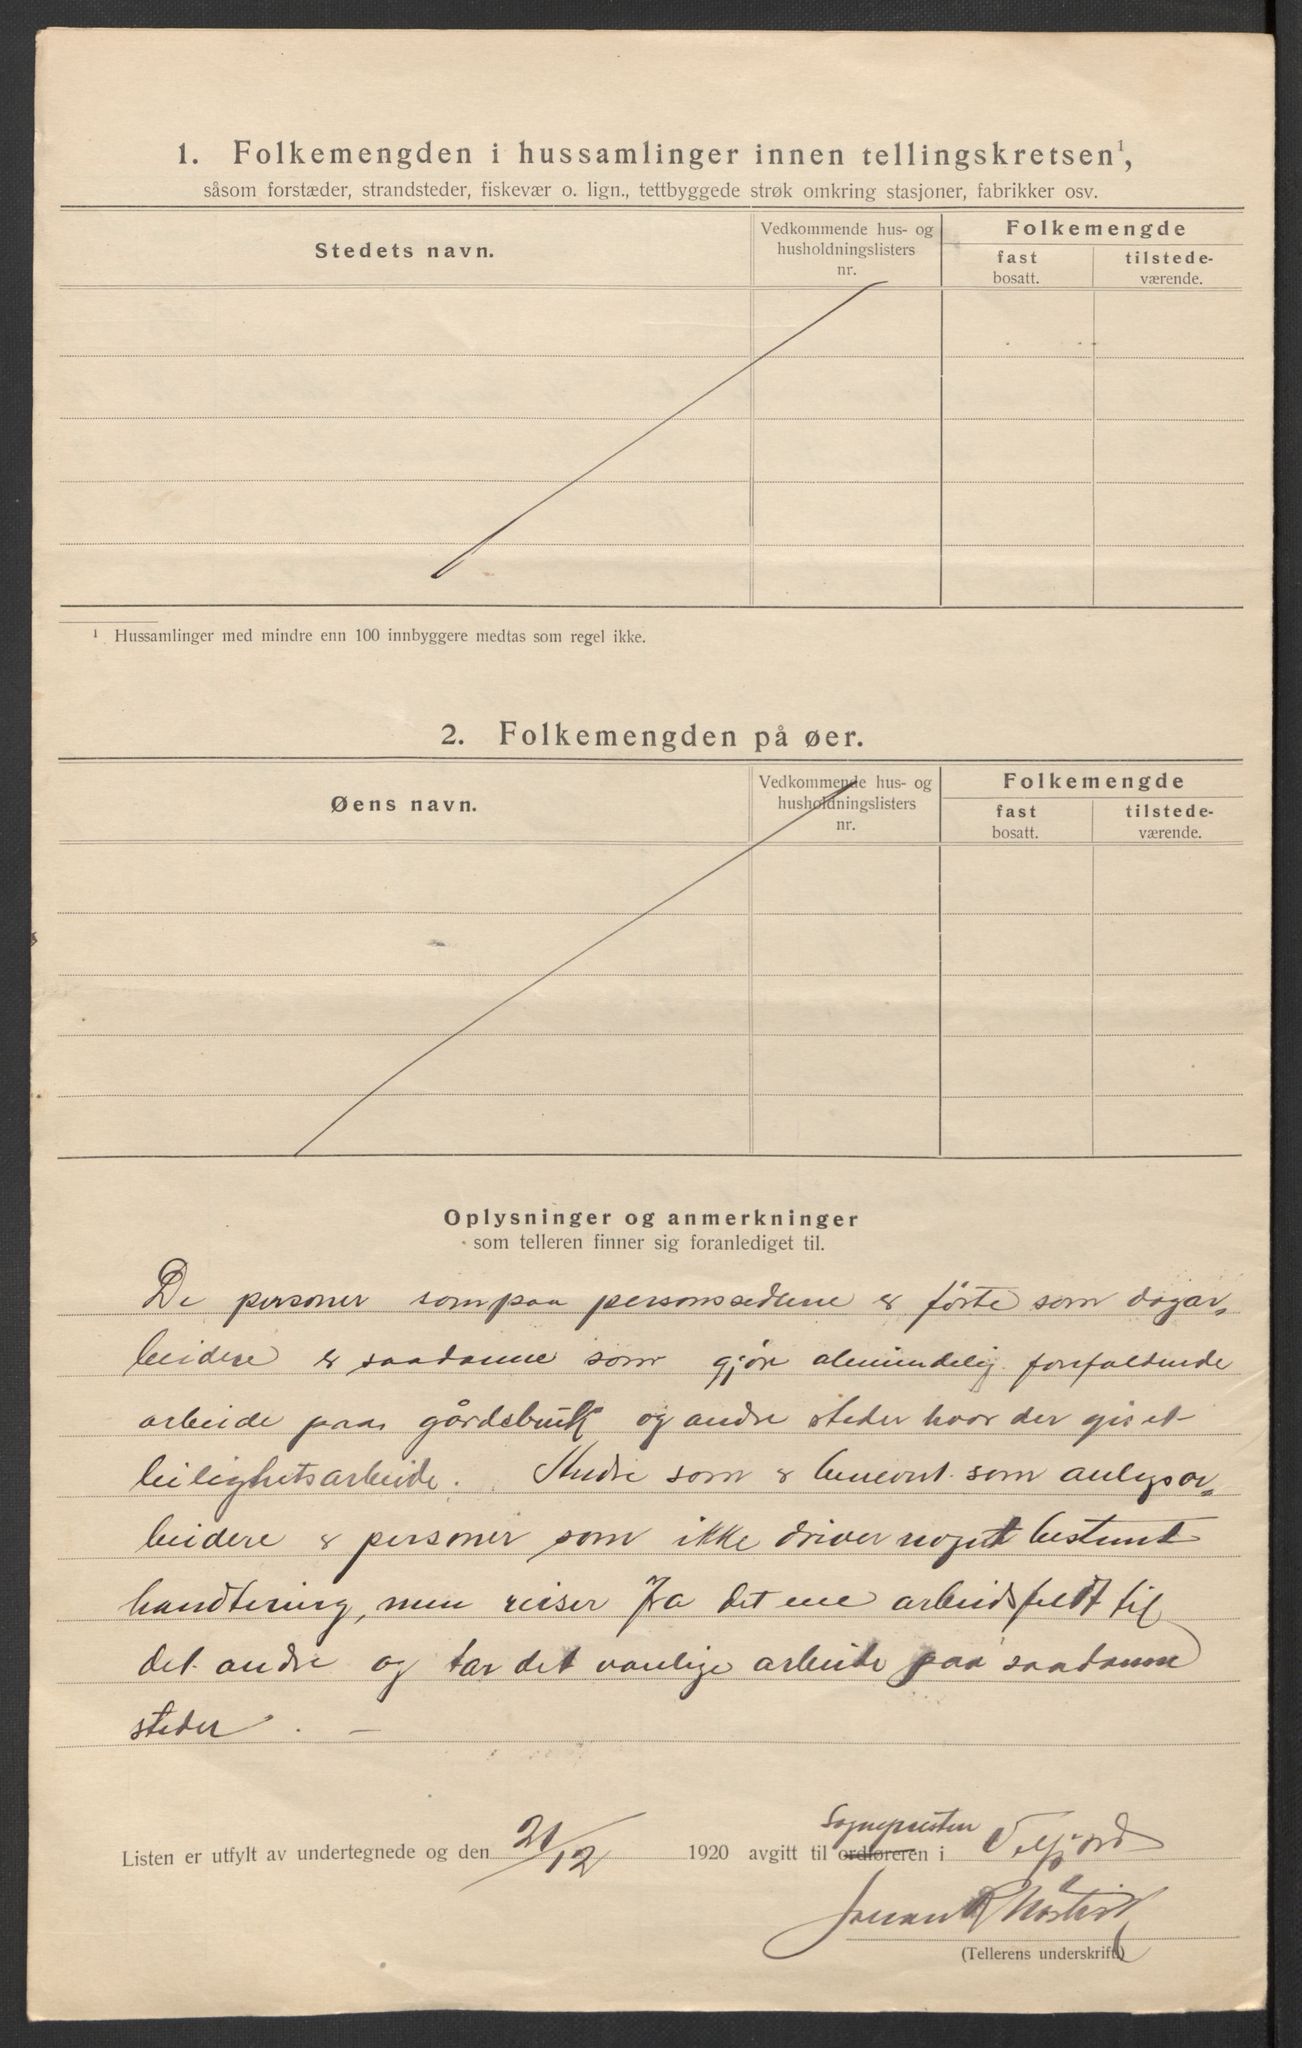 1. Folkemengden i hussamlinger innen tellingskretsen¹,
såsom forstæder, strandsteder, fiskevær o. lign., tettbyggede strøk omkring stasjoner, fabrikker osv.
Stedets navn.
Vedkommende hus- og
husholdningslisters
nr.
Folkemengde
fast
bosatt.
tilstede-
værende.
¹ Hussamlinger med mindre enn 100 innbyggere medtas som regel ikke.
2. Folkemengden på øer.
Øens navn.
Vedkommende hus- og
husholdningslisters
nr.
Folkemengde
fast
bosatt.
tilstede-
værende.
Oplysninger og anmerkninger
som telleren finner sig foranlediget til.
De personer som paa personssedlene er førte som dagar-
beidere er saadanne som gjør almindelig forefaldende
arbeide paa gårdsbruk og andre steder hvor der gis et
leilighetsarbeide. Andre som er benevnt som anlegsar-
beidere er personer som ikke driver noget bestemt
handtering, men reiser fra det ene arbeidsfeldt til
det andre og tar det vanlige arbeide paa saadanne
steder. —
Listen er utfylt av undertegnede og den 21/12 1920 avgitt til ordføreren i Sognepresten Velfjord
Johan
(Tellerens underskrift)